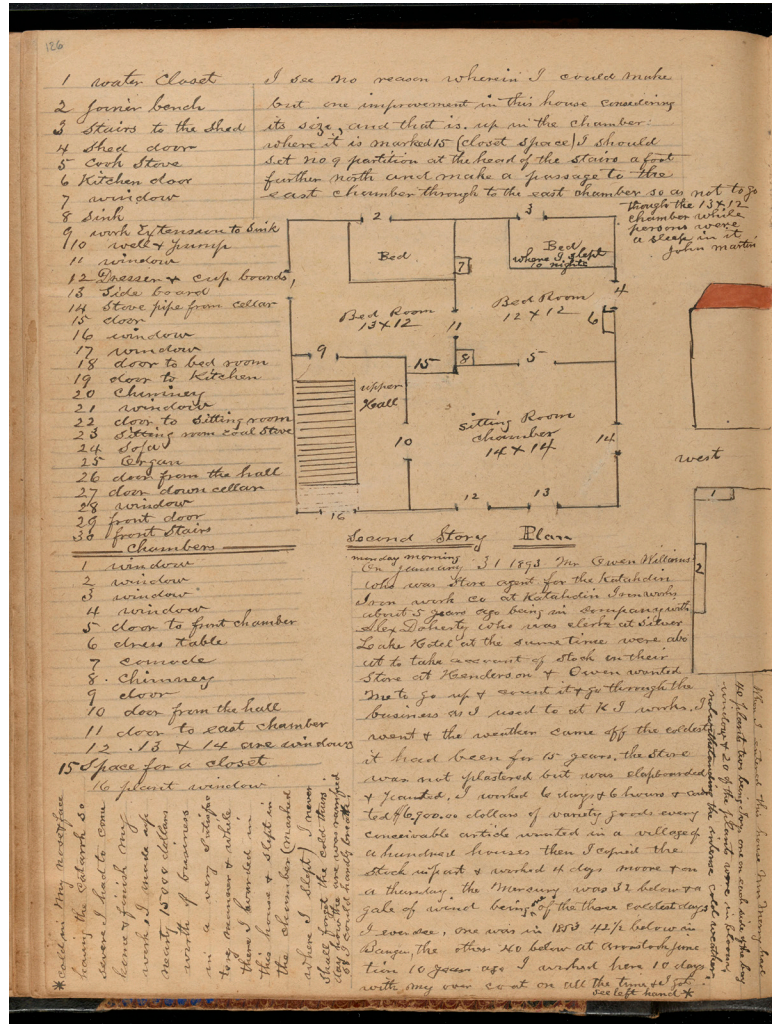 126
1 water Closet
2 Joiner bench
3 Stairs to the Shed
4 Shed door
5 Cook Stove
6 Kitchen door
7 window
8 Sink
9 work Extension to Sink
10 well & pump
11 window
12 Dresser & cup boards,
13 Side board
14 Stove pipe from cellar
15 door
16 window
17 window
18 door to bed room
19 door to Kitchen
20 Chimney
21 window
22 door to Sitting room
23 Sitting room Coal Stove
24 Sofa
25 Organ
26 door from the hall
27 door down cellar
28 window
29 front door
30 front Stairs
Chambers
1 window
2 window
3 window
4 window
5 door to front chamber
6 dress table
7 comode
8 Chimney
9 door
10 door from the hall
11 door to east chamber
12 . 13 & 14 are windows
15 Space for a closet
16 plant window
I see no reason wherein I could make
but one improvement in this house considering
its size, and that is. up in the chamber:
where it is marked 15 (closet space) I should
set no 9 partition at the head of the stairs a foot
further north and make a passage to the
east chamber through to the east chamber so as not to go
though the 13 x 12
chamber while
persons were
a sleep in it
John Martin
2
3
Bed
7
Bed
where I slept
10 nights
4
Bed Room
13 x 12
Bed Room
12 x 12
6
11
9
15
8
5
upper
Hall
Sitting Room
chamber
14 x 14
10
14
12
13
16
west
1
2
Second Story Plan
monday morning
On January 31 1893 Mr Owen Williams
who was Store agent for the Katahdin
Iron work Co at Katahdin Ironworks
about 5 years ago being in company with
Alex Doherty who was clerk at Silver
Lake Hotel at the same time were abo
ut to take account of Stock in their
Store at Henderson & Owen wanted
me to go up & count it & go through the
business as I used to at K I works. I
went & the weather came off the coldest
it had been for 15 years. the Store
was not plastered but was clapboarded
& I worked 6 days & 6 hours &
ted $6,700.00 dollars of variety goods every
conceivable article wanted in a village of
a hundred houses then I copied the
Stock & worked 4 days moore & on
a thursday the Mercury was 32 below & a
gale of wind being one of the three coldest days
I ever see, one was in 1853 42½ below in
Bangor, the other 40 below at aroostook junc
tion 10 years ago I worked here 10 days
with my over coat on all the time & I got
see left hand *
* cold in my nose face
having the catarrh so
severe I had to come
home & finish my
work, I made up
nearly 15000 dollars
worth of business
in a very
manner & while
there I boarded in
this house & slept in
the chamber (marked
where I slept) I never
shall forget the cold thurs
day & how the air was
I could hardly breathe
When I entered this house Mrs had
40 plants two being large one on each side of the bay
window & 20 of the plants were in blossom
notwithstanding the intense cold weather